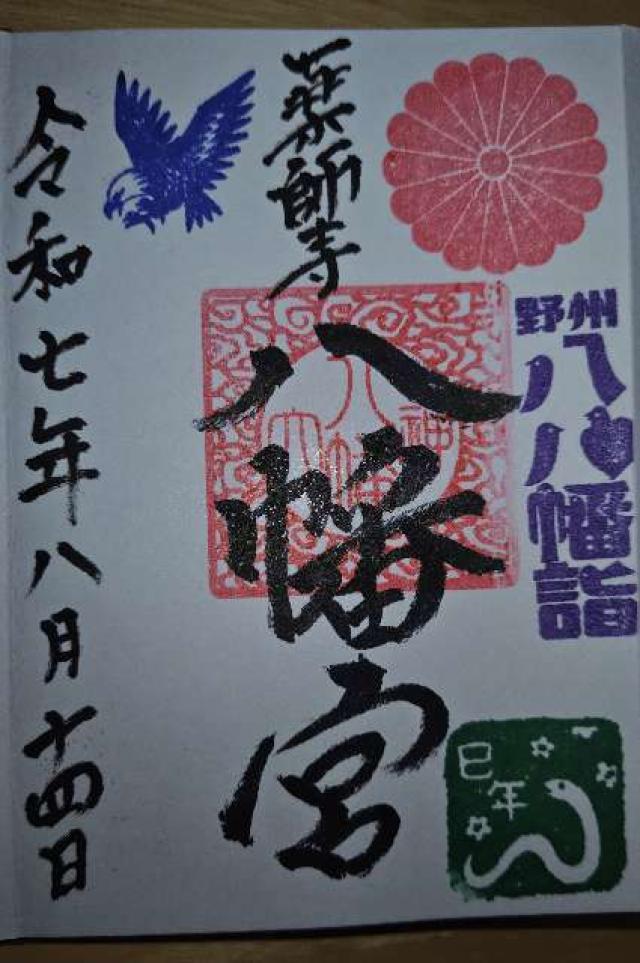 野州
八八幡詣
薬師寺
八幡宮
巳年
令和七年八月十四日